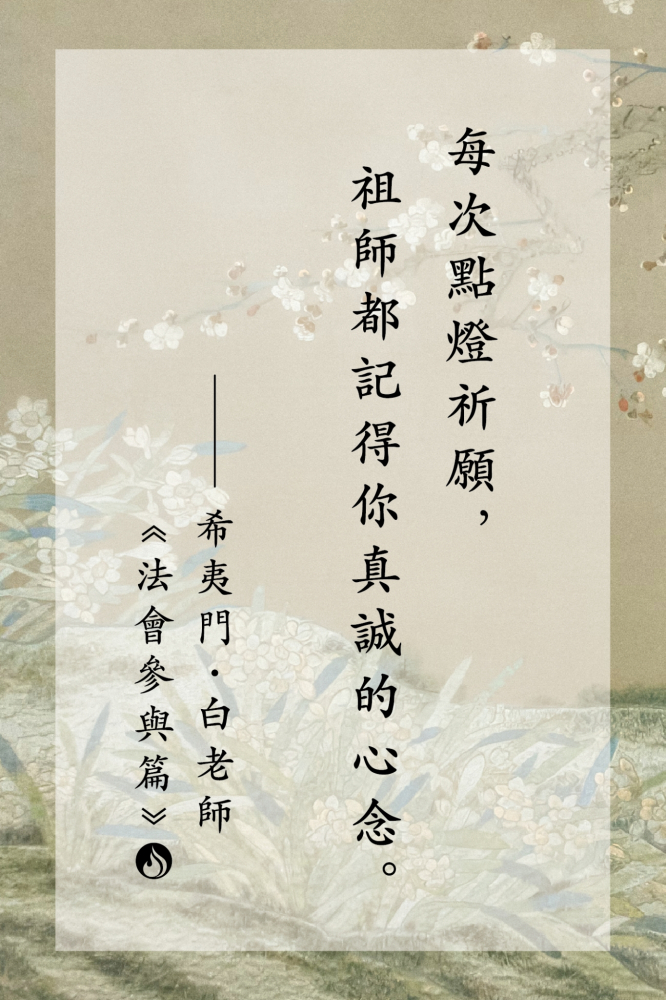 每次點燈祈願，
祖師都記得你真誠的心念。
——希夷門·白老師
《法會參與篇》